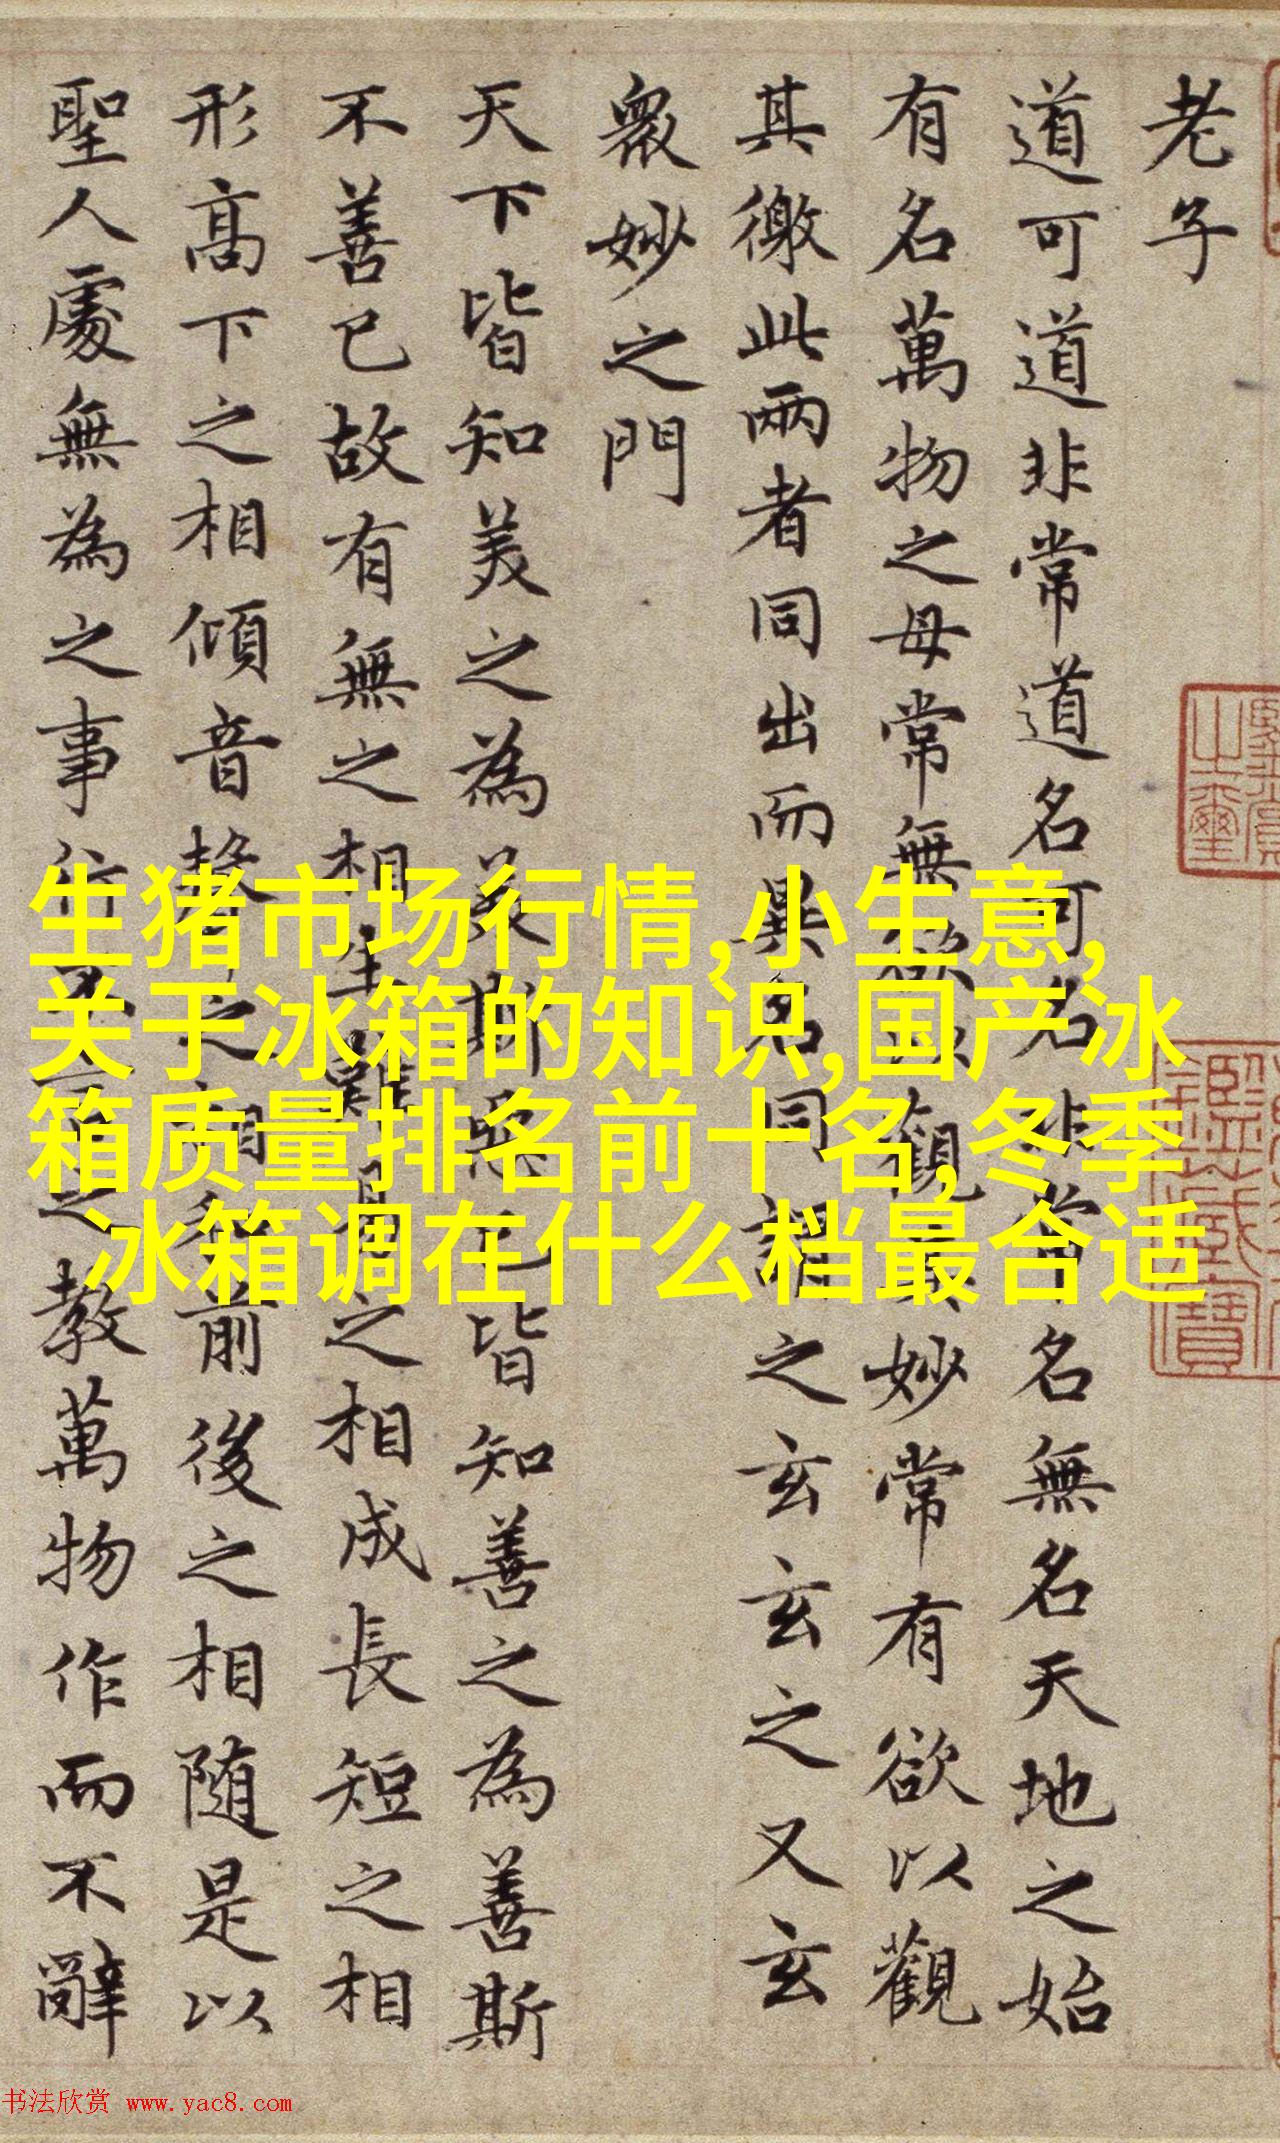 老子
道可道非常道名可名非常名無名天地之始
有名萬物之母常無欲以觀其妙常有欲以觀
其徼此兩者同出而異名同謂之玄玄之又玄
衆妙之門
天下皆知美之為美斯惡已皆知善之為善斯
不善已故有無之相生難易之相成長短之相
形高下之相傾音聲之相和前後之相随是以
聖人處無為之事行不言之教萬物作而不辭
生猪市场行情,小生意,
关于冰箱的知识,国产冰
箱质量排名前十名,冬季
冰箱调在什么档最合适
书法欣赏 www.yac8.com